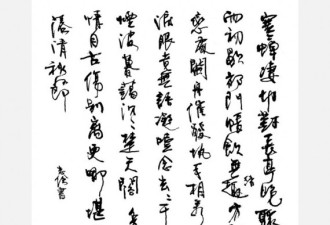 寒蟬淒切對長亭晚驟
雨初歇都門帳飲無緒方
戀處蘭舟催發執手相看
淚眼竟無語凝噎念去去千
煙波暮靄沉沉楚天闊多
情自古傷別離更哪堪
落清秋節